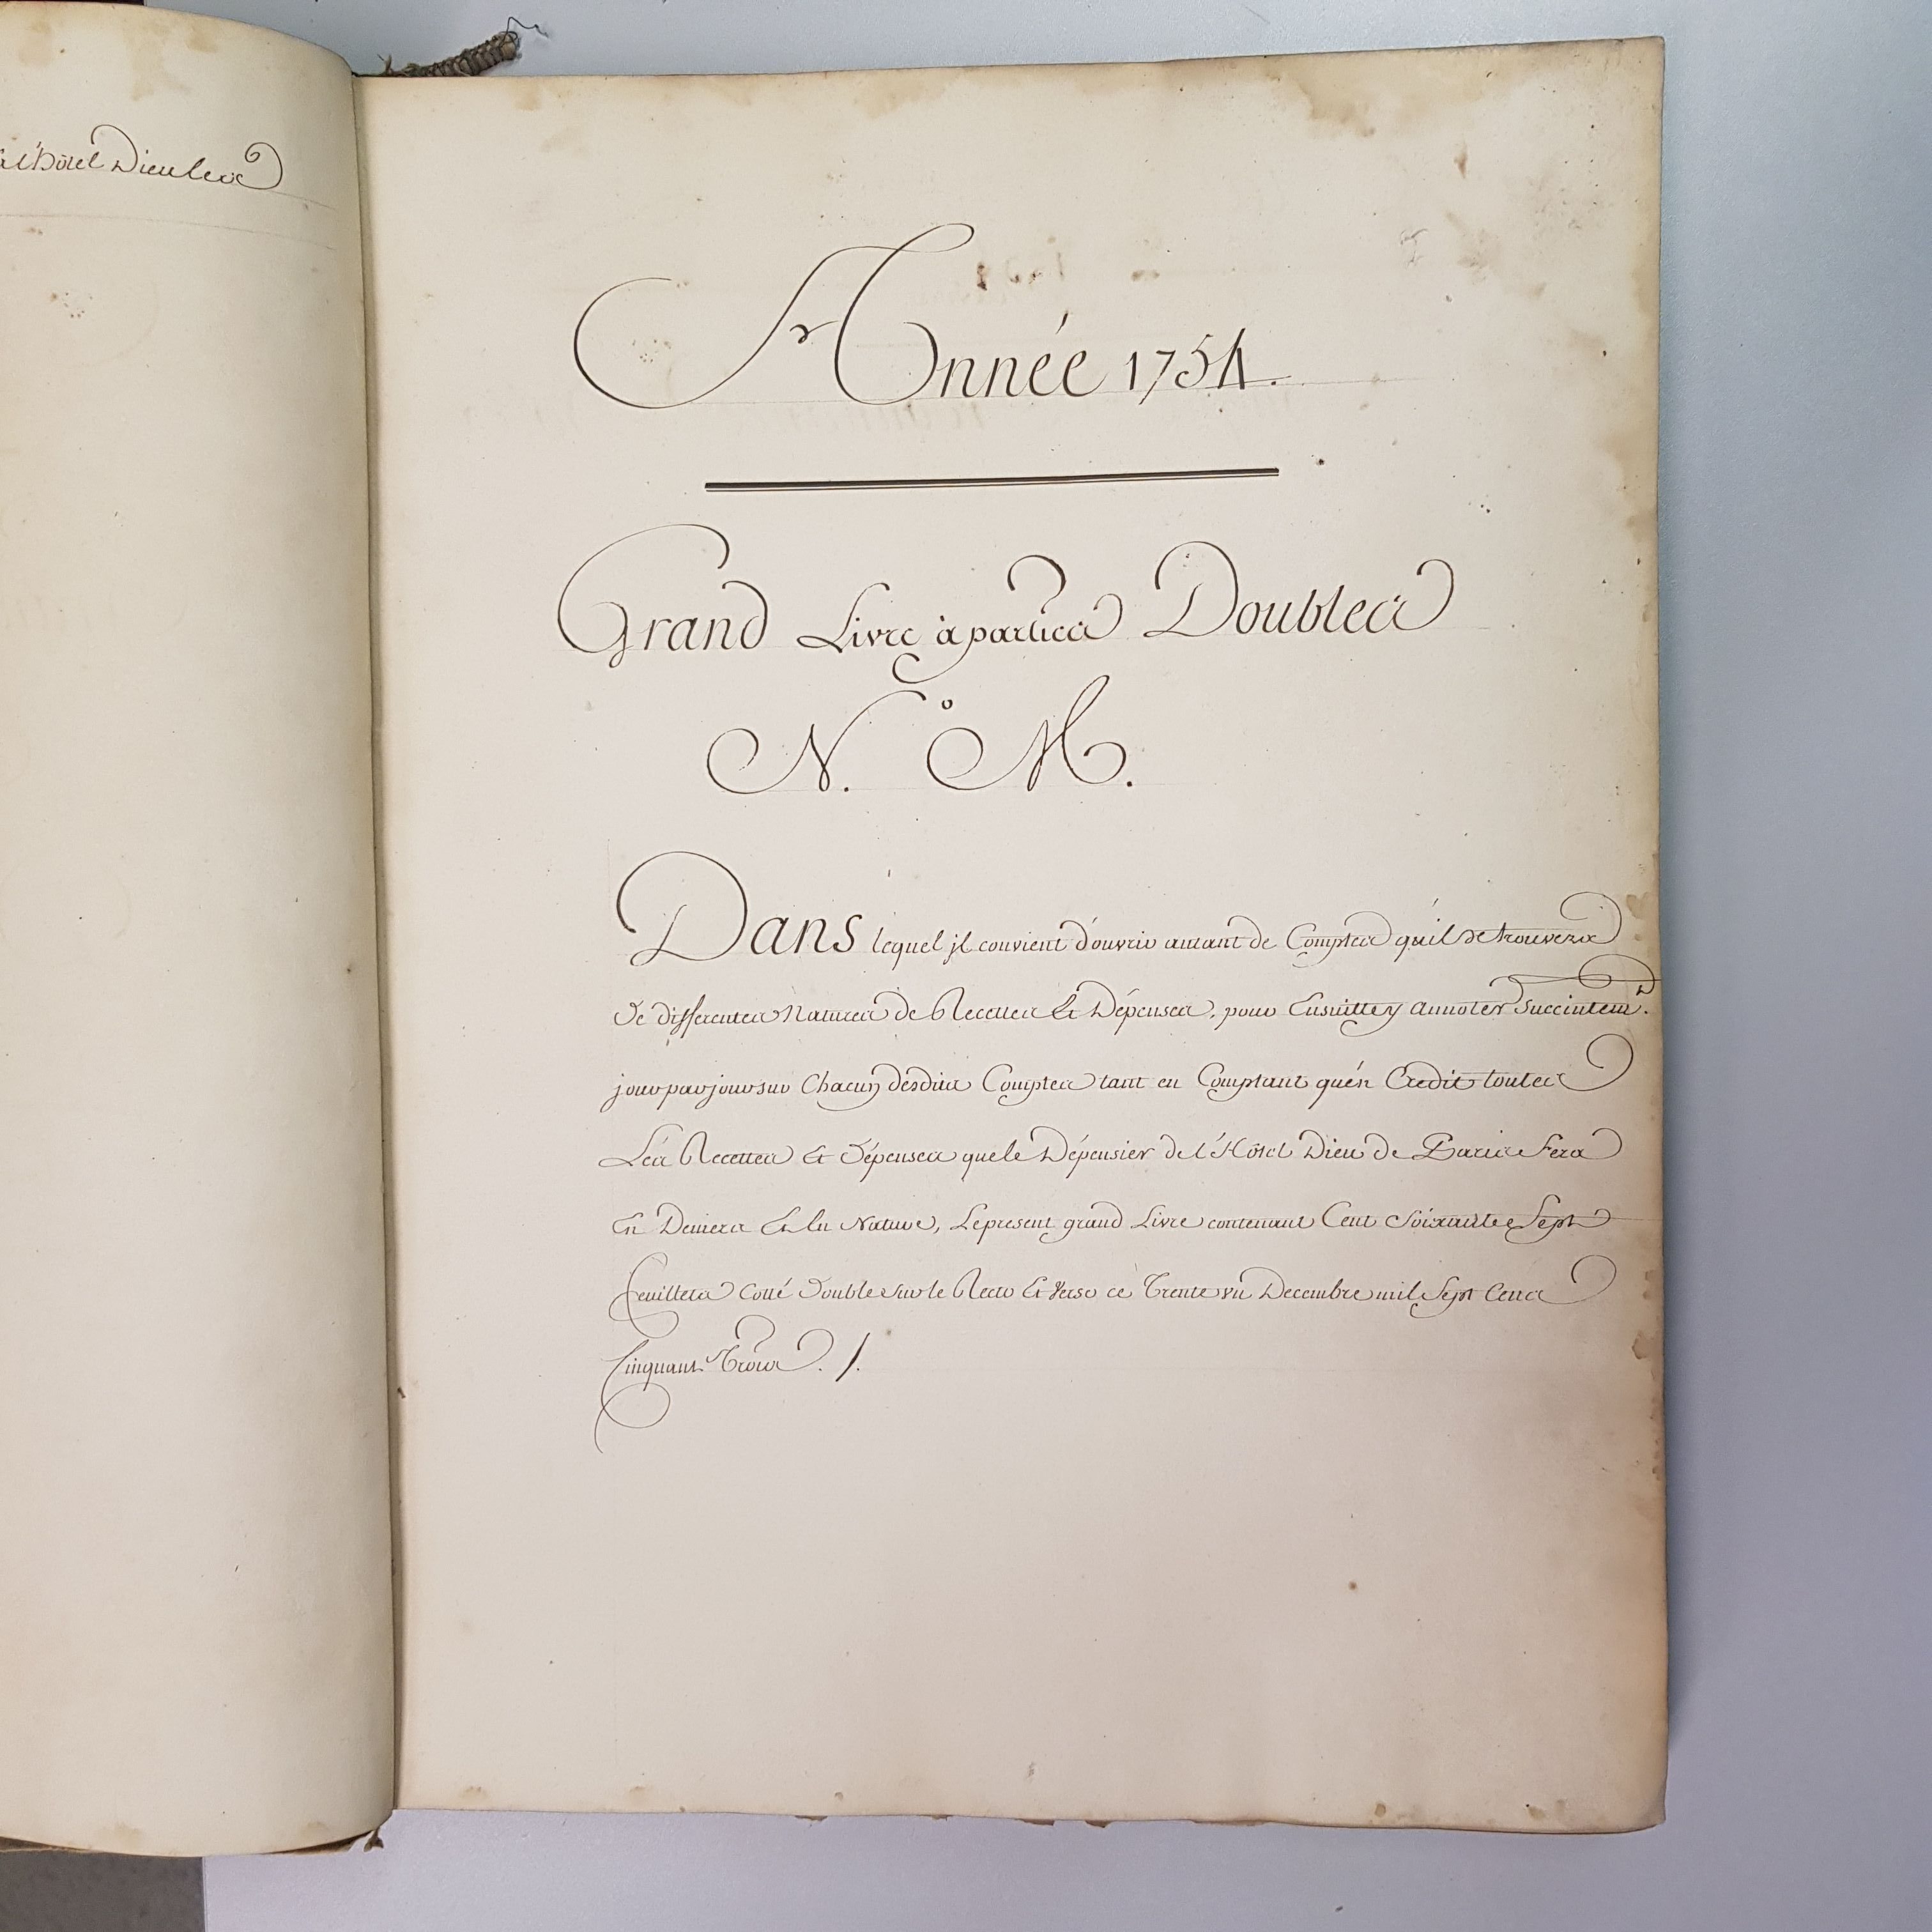 à l'hôtel Dieu les
Année 1754.
Grand Livre à parties Doubles
N.° M.
Dans lequel jl convient d'ouvrir autant de Comptes qu'il se trouvera
de differentes Natures de Recettes Et Dépenses, pour Ensuitte y annoter Succintem.t
jour par jour sur Chacun desdits Comptes tant en Comptant qu'en Credit toutes
Les Recettes Et Dépenses que le Dépensier de l'Hôtel Dieu de Paris fera
En Deniers Et En Nature, Le present grand Livre contenant Cent Soixante Sept
feuillets Cotté Double sur le Recto Et Verso ce Trente un Decembre mil Sept Cens
Cinquante Trois. /.